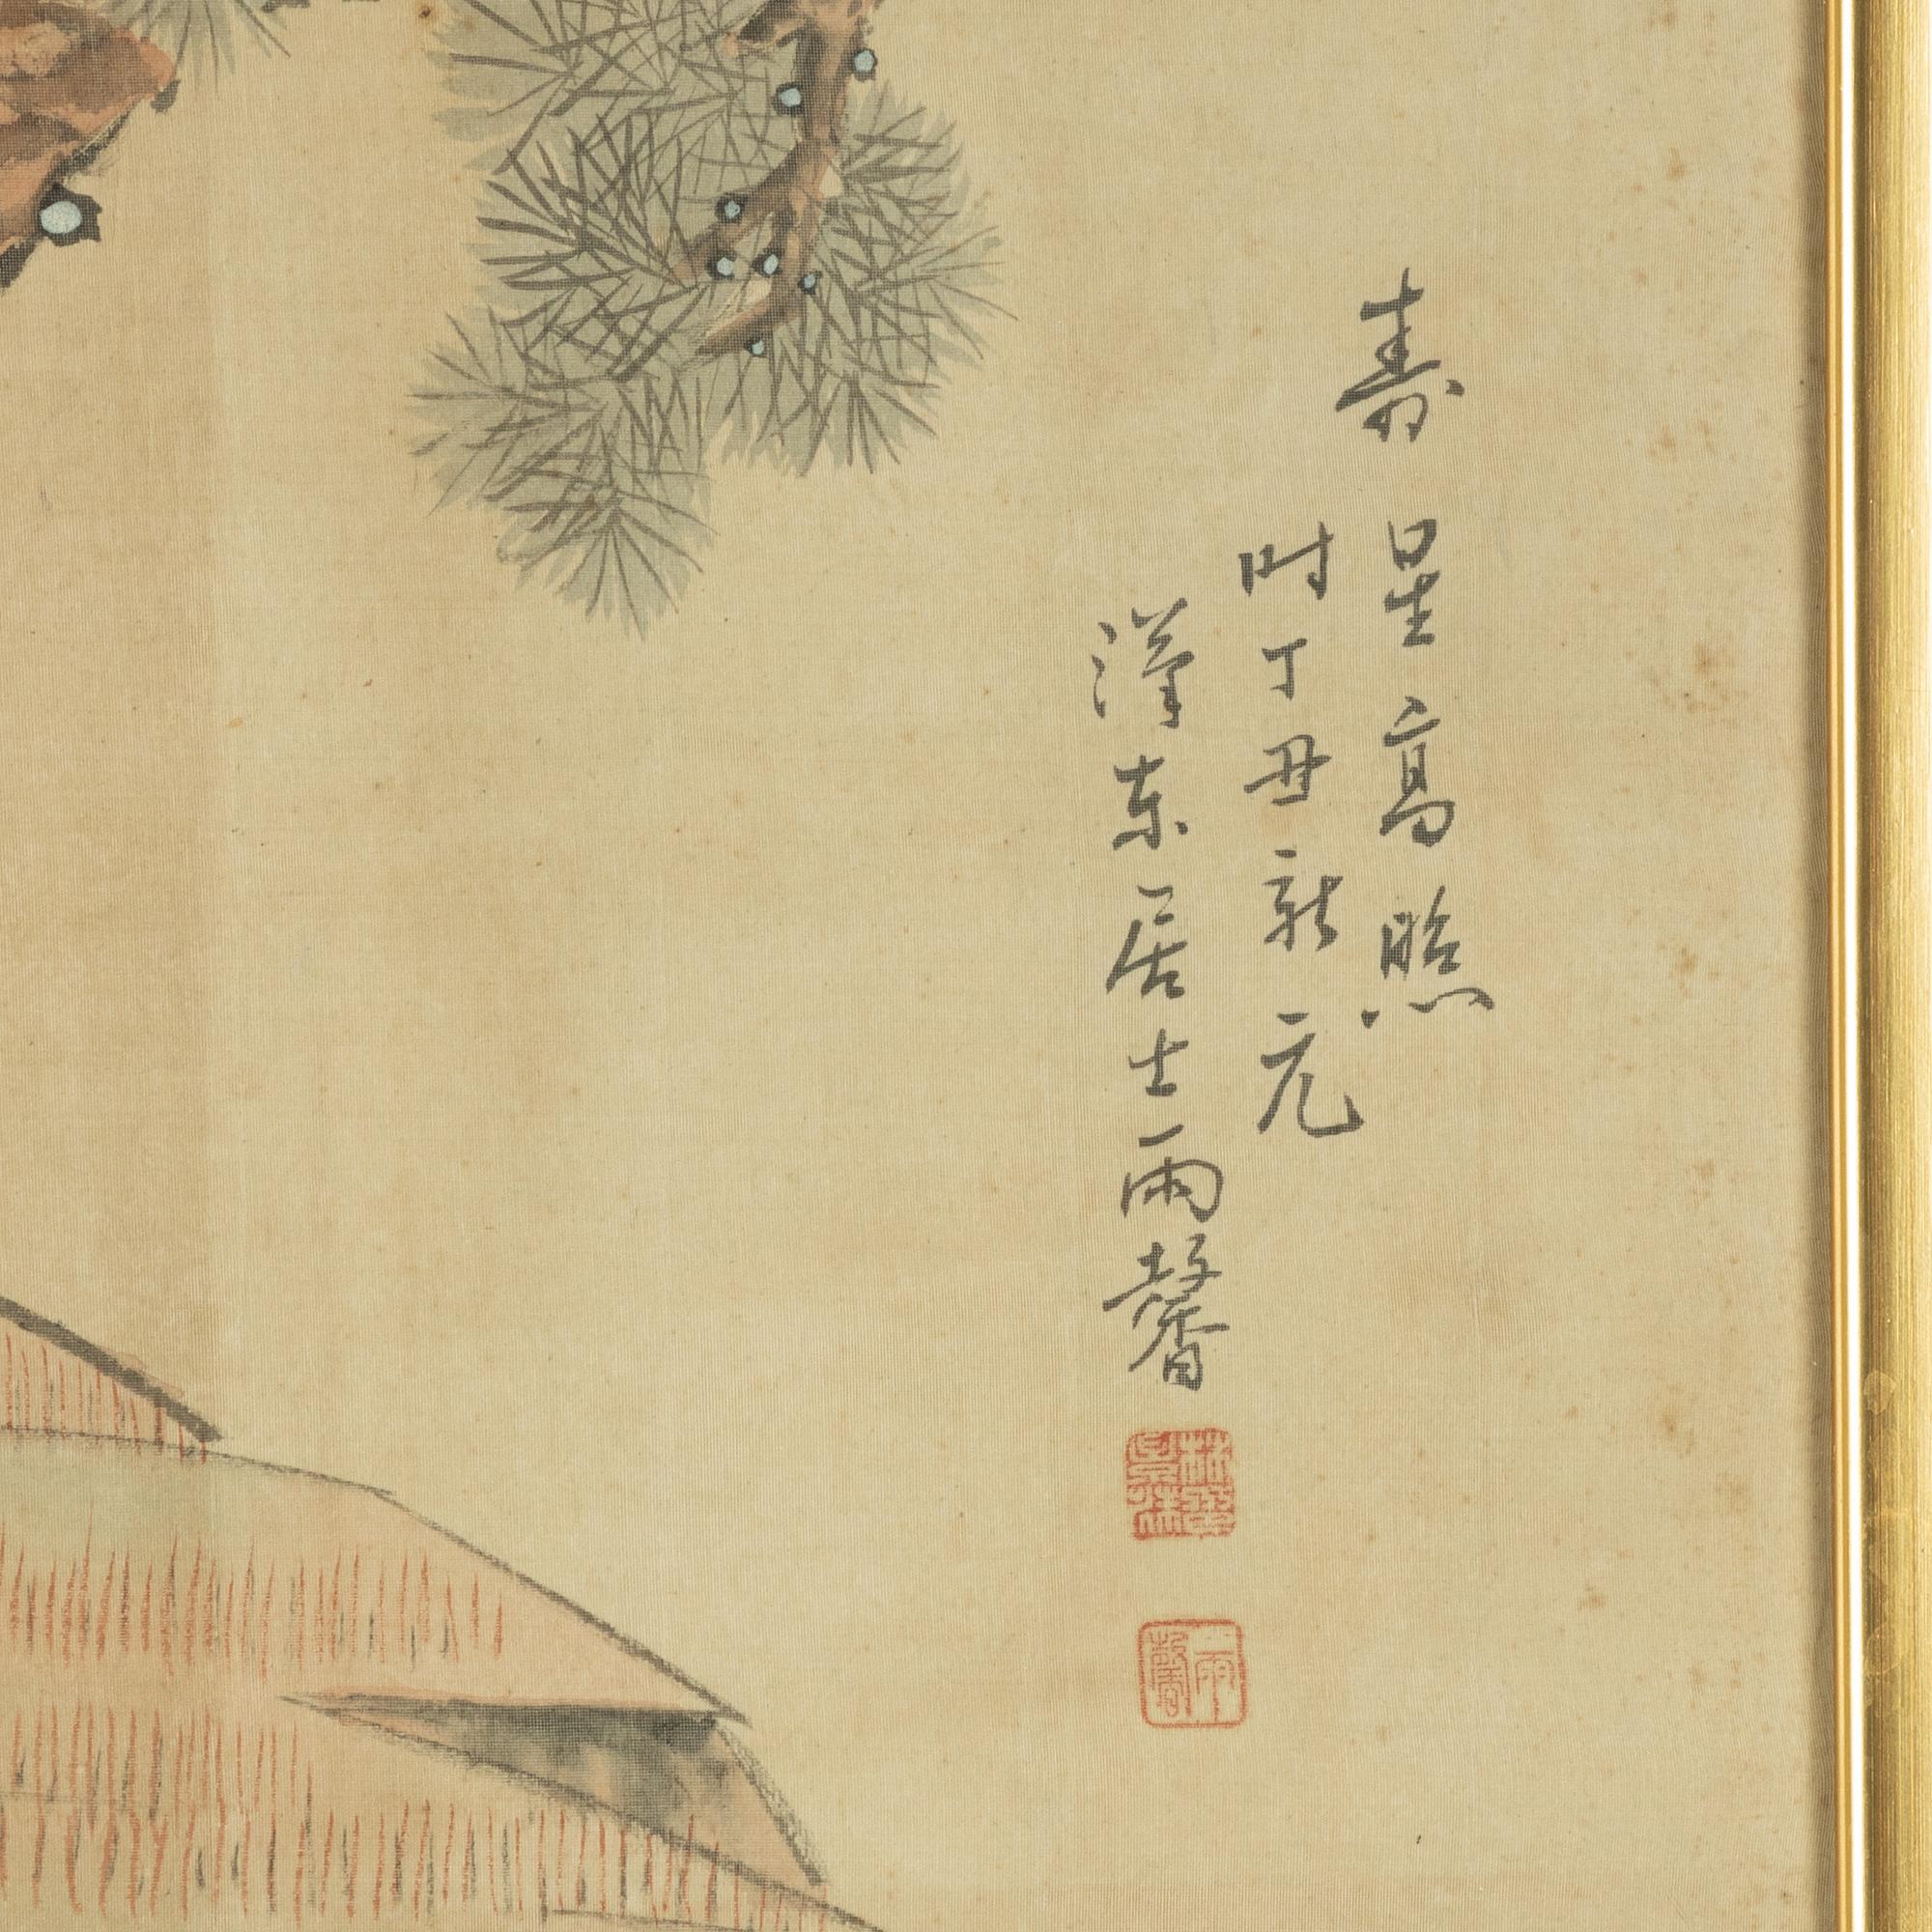 壽星高照
时丁丑新元
漢東居士雨馨
雨馨